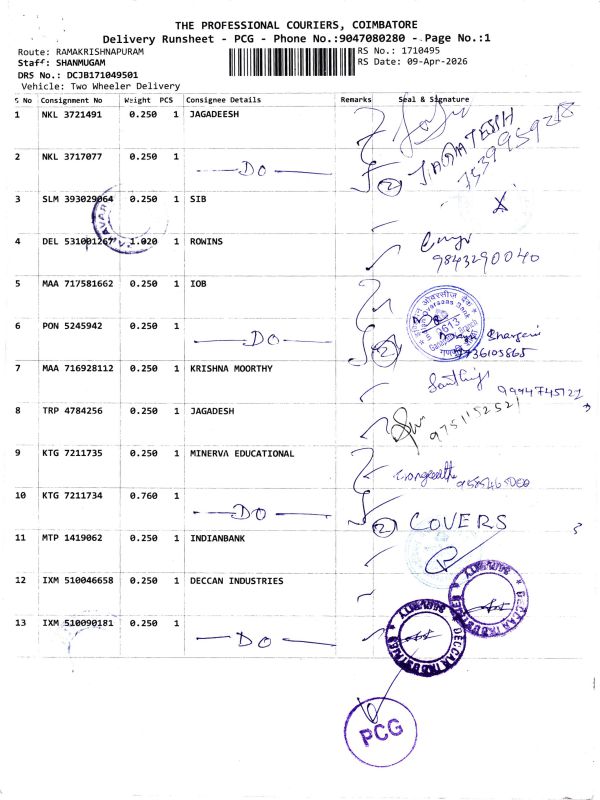 THE PROFESSIONAL COURIERS, COIMBATORE
Delivery Runsheet - PCG - Phone No.:9047080280 - Page No.:1
Route: RAMAKRISHNAPURAM RS No.: 1710495
Staff: SHANMUGAM RS Date: 09-Apr-2026
DRS No.: DCJB171049501
Vehicle: Two Wheeler Delivery
S No Consignment No Weight PCS Consignee Details Remarks Seal & Signature
1 NKL 3721491 0.250 1 JAGADEESH
JAGATESH
7539959258
2 NKL 3717077 0.250 1 DO 2
3 SLM 393029064 0.250 1 SIB
4 DEL 531001267 1.020 1 ROWINS
9843290040
5 MAA 717581662 0.250 1 IOB
6 PON 5245942 0.250 1 DO 2
7 MAA 716928112 0.250 1 KRISHNA MOORTHY
8 TRP 4784256 0.250 1 JAGADESH
9751152521
9 KTG 7211735 0.250 1 MINERVA EDUCATIONAL
10 KTG 7211734 0.760 1 DO 2 COVERS
11 MTP 1419062 0.250 1 INDIANBANK
12 IXM 510046658 0.250 1 DECCAN INDUSTRIES
13 IXM 510090181 0.250 1 DO
DECCAN INDUSTRIES
DECCAN INDUSTRIES
PCG